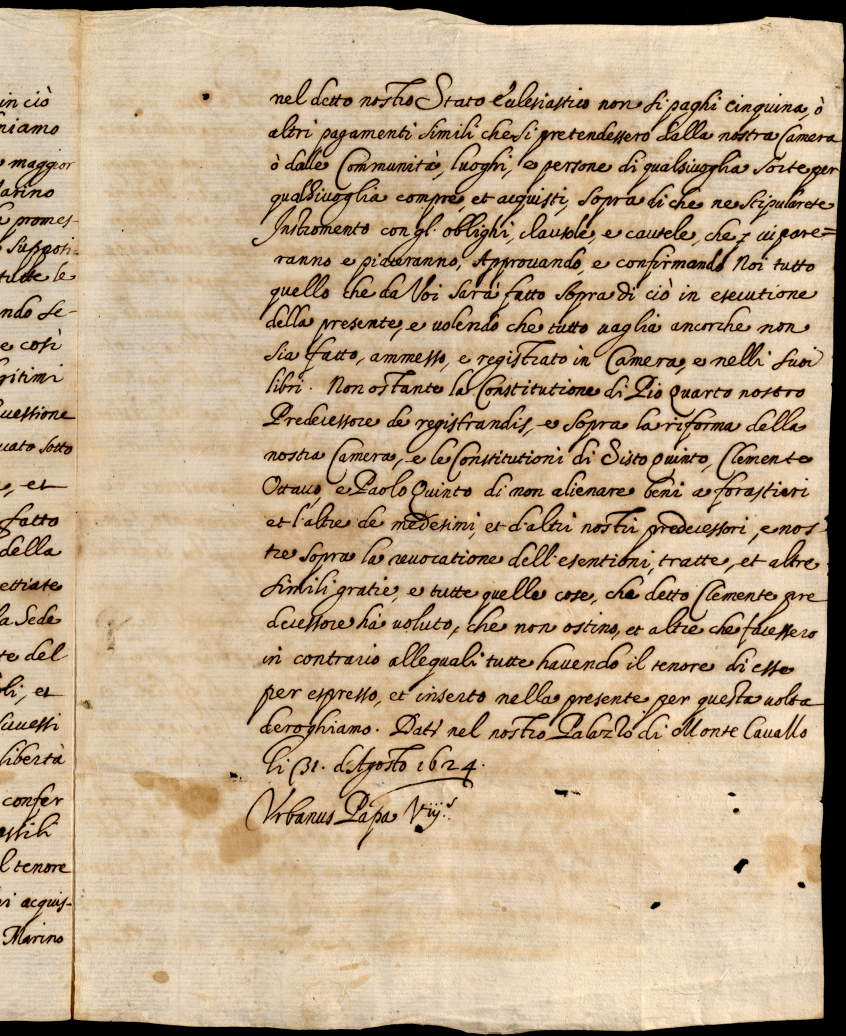 in ciò
niamo
maggior
arino
promes-
supposi-
tutte le
ndo se-
e così
gitimi
uestione
uato sotto
, et
fatto
della
ettiate
la Sede
te del
li, et
successi
libertà
confer
essili
l tenore
ri acquis-
Marino
nel detto nostro Stato Eclesiastico non si paghi cinquina, ò
altri pagamenti simili che si pretendessero dalla nostra Camera
ò dalle Communità, luoghi, e persone di qualsivoglia sorte per
qualsivoglia compre, et acquisti, sopra di che ne stipularete
Instromento con gl' oblighi, clausole, e cautele, che vi pare=
ranno e piaceranno, Approvando, e confirmando Noi tutto
quello che da Voi sarà fatto sopra di ciò in esecutione
della presente, e volendo che tutto vaglia ancorche non
sia fatto, ammesso, e registrato in Camera, e nelli suoi
libri. Non ostante la Constitutione di Pio Quarto nostro
Predecessore de registrandis, e sopra la riforma della
nostra Camera, e le Constitutioni di Sisto Quinto, Clemente
Ottavo, e Paolo Quinto di non alienare beni a forastieri
et l'altre de medesimi, et d'altri nostri predecessori, e nos
tre sopra la revocatione dell'esentioni, tratte, et altre
simili gratie, e tutte quelle cose, che detto Clemente pre
decessore hà voluto, che non ostino, et altre che facessero
in contrario allequali tutte havendo il tenore di esse
per espresso, et inserto nella presente per questa volta
deroghiamo. Dat' nel nostro Palazzo di Monte Cavallo
li 31. d'Agosto 1624.
Urbanus Papa Viij.s